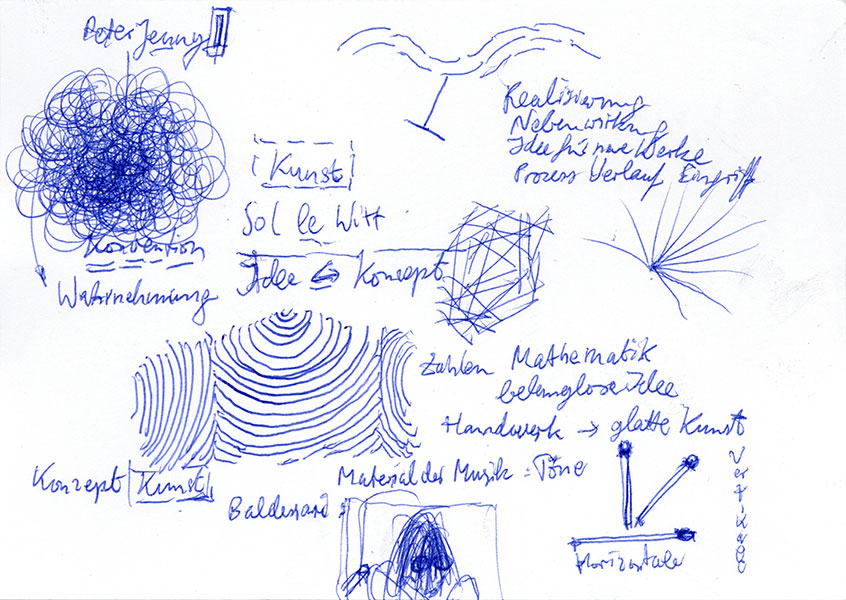 Peter Jenny
Realisierung
Nebenwirkung
Idee für neue Werke
Prozess Verlauf Eingriff
Kunst
Sol le Witt
Konvention
Wahrnehmung
Idee ⇔ Konzept
Zahlen Mathematik
belanglose Idee
Handwerk → glatte Kunst
Konzept Kunst
Material der Musik = Töne
Baldessari
Horizontale
Vertikale